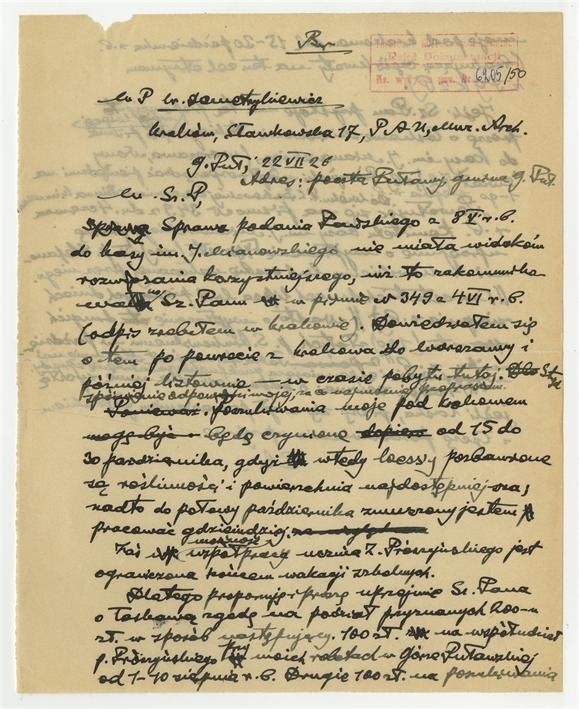 Br.
W P Dr. Demetrykiewicz
Kraków, Sławkowska 17, P A U, Muz. Arch.
g. Puł., 22 VII 26
Adres: poczta Puławy gmina g. Puł.
W. Sz. P,
Sprawa podania Pańskiego z 8 V r. b.
do kasy im. J. Mianowskiego nie miała widoków
rozwiązania korzystniejszego, niż to zakomuniko-
Sz. Panu w piśmie № 349 z 4 VI r. b.
(odpis zrobiłem w Krakowie). Dowiedziałem się
o tem po powrocie z Krakowa do Warszawy i
później listownie – w czasie pobytu tutaj.
Ponieważ Poszukiwania moje pod Krakowem
mogę być będę czynione dopiero od 15 do
30 października, gdyż wtedy loessy pozbawione
są roślinności i powierzchnia najdostępniejsza;
nadto do połowy października zmuszony jestem
pracować gdzieindziej.
możność
Zaś współpracy ucznia Z. Prószyńskiego jest
ograniczona końcem wakacji szkolnych.
Dlatego proponuję i proszę uprzejmie Sz. Pana
o łaskawą zgodę na podział przyznanych 200-u
zł. w sposób następujący. 100 zł. na współudział
p. Prószyńskiego przy moich robotach w Górze Puławskiej
od 1-10 sierpnia r. b. Drugie 100 zł. na poszukiwania
6905/50